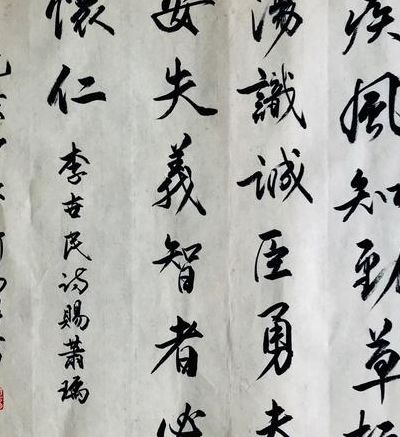 疾風知勁草板
蕩識誠臣勇夫
安失義智者必
懷仁
李世民詩賜蕭瑀